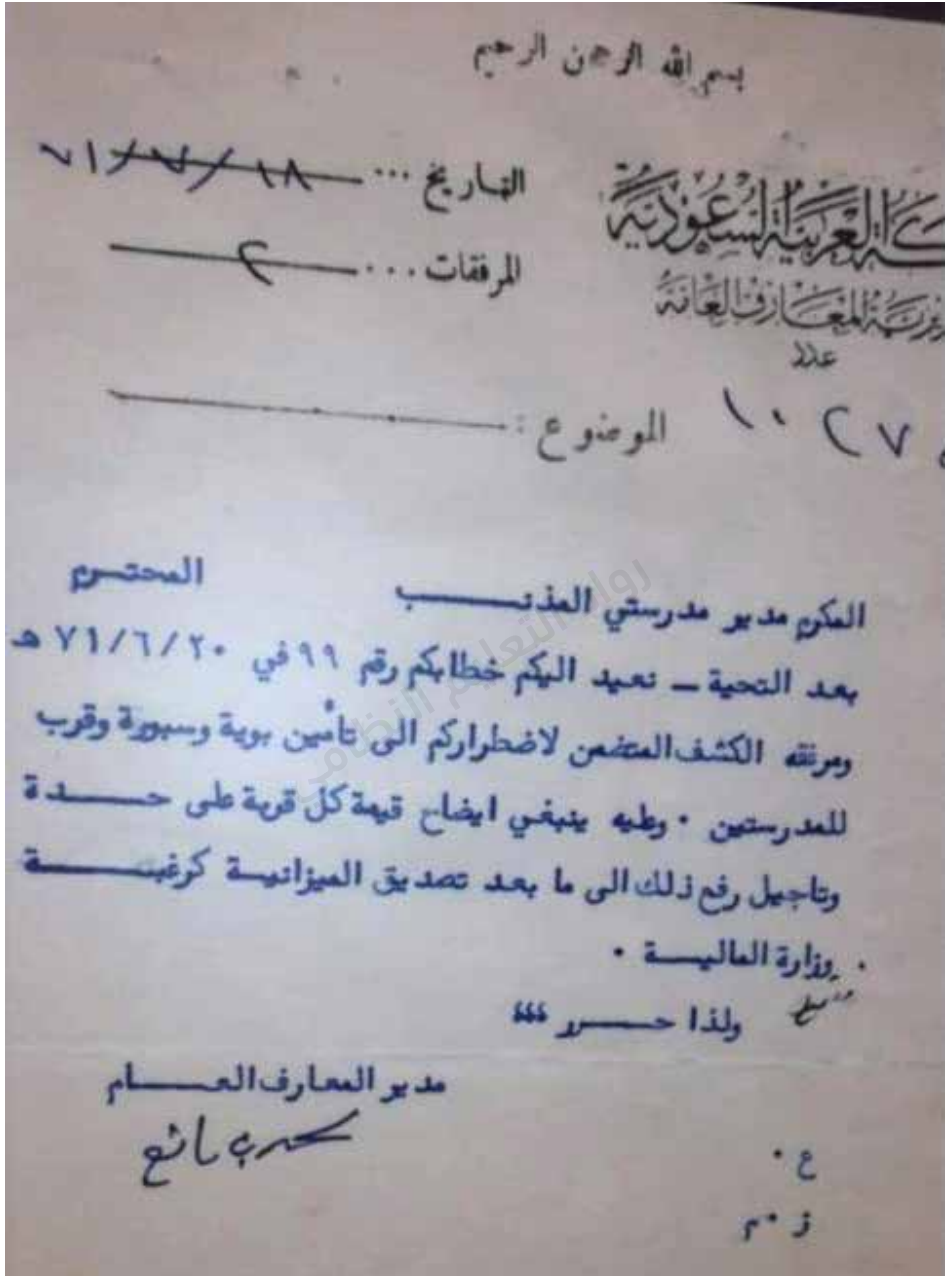 بسم الله الرحمن الرحيم
العربية السعودية
المعارف العامة
عدد
١٠٢٧
التاريخ ... ١٨/٧/٧١
المرفقات ... ٢
الموضوع :
المكرم مدير مدرستي المذنـب المحتـرم
بعد التحية ــ نعيد اليكم خطابكم رقم ٩٩ في ٧١/٦/٢٠ هـ
ومرفقه الكشف المتضمن لاضطراركم الى تأمين بوية وسبورة وقرب
للمدرستين ٠ وعليه ينبغي ايضاح قيمة كل قربة على حـــدة
وتاجيل رفع ذلك الى ما بعد تصديق الميزانيـة كرغبـــة
وزارة الماليـــة ٠
ولذا حـــرر ؛؛؛
مدير المعارف العـــام
ع ٠
ز ٠ م
رواد التعليم النظامي